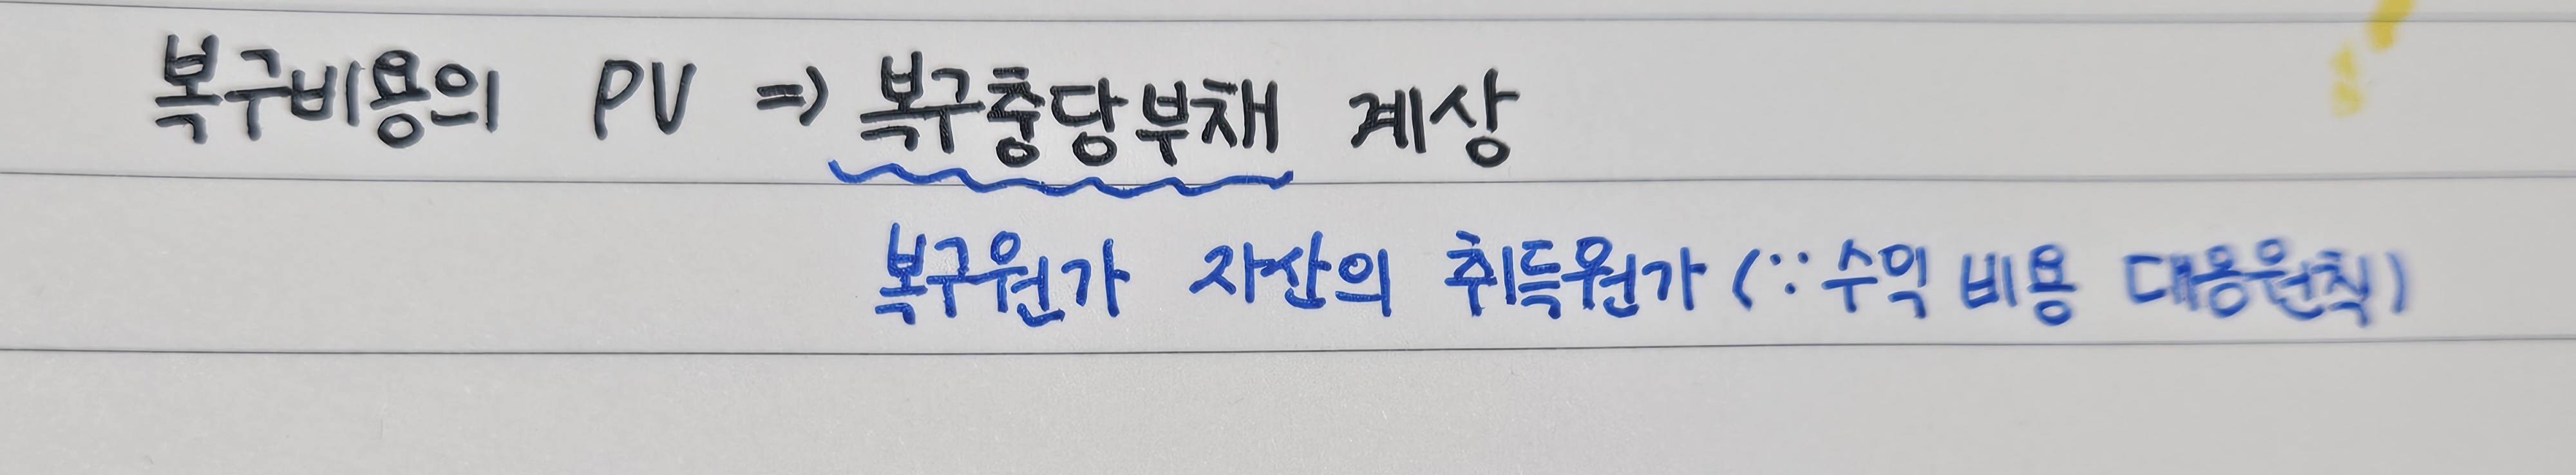 복구비용의 PV ⇒ 복구충당부채 계상
복구원가 자산의 취득원가 (∵ 수익 비용 대응원칙)